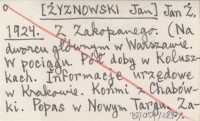 [ŻYZNOWSKI Jan] Jan Ż.
1924. Z Zakopanego. (Na
dworcu głównym w Warszawie.
W pociągu. Pół doby w Kolusz-
kach. Informacje urzędowe
w Krakowie. Końmi z Chabów-
ki. Popas w Nowym Targu. Za-